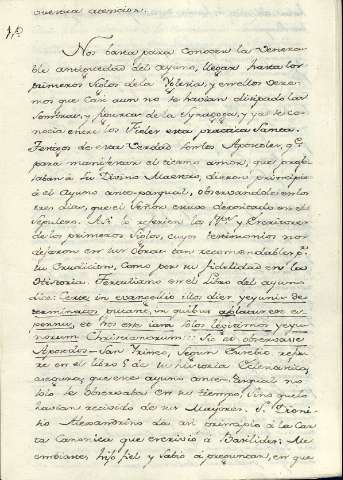 vuestra atencion.
1ª
Nos basta para conocer la venera-
ble antiguedad del ayuno, llegar hasta los
primeros siglos de la Yglesia, y en ellos vere-
mos que casi aun no se havian disipado las
sombras, y figuras de la Synagoga, y ya se co-
nocia entre los Fieles esta practica santa.
Testigos de esta verdad son los Apostoles, qe.
para manifestar el tierno amor, que profe-
saban à su Divino Maestro, dieron principio
à el Ayuno ante-pasqual, observandole en los
tres dias, que el Señor estuvo depositado en el
sepulcro. Asi lo refieren los y Escritores
de los primeros siglos, cuyos testimonios nos
dejaron en sus obras tan recomendables pr.
su erudicion, como por su fidelidad en la
Historia. Tertuliano en el Libro del ayuno
dice: Certe in evangelio illos dies jejuniis de-
terminatos putant, in quibus ablatus est
sponsus, et hos esse iam solos legitimos jeju-
niorum Christianorum: Sic et observasse
Apostolos = San Yrineo, segun Eusebio refie-
re en el libro 5 de su historia Eclesiastica,
asegura, que este ayuno ante-Pasqual no
solo se observaba en su tiempo, sino que lo
havian recivido de sus Mayores. S. Dioni-
sio Alexandrino da asi principio à la Car-
ta Canonica que escrivió à Basilides: Me
embiastes hijo fiel y sabio à preguntar, en que